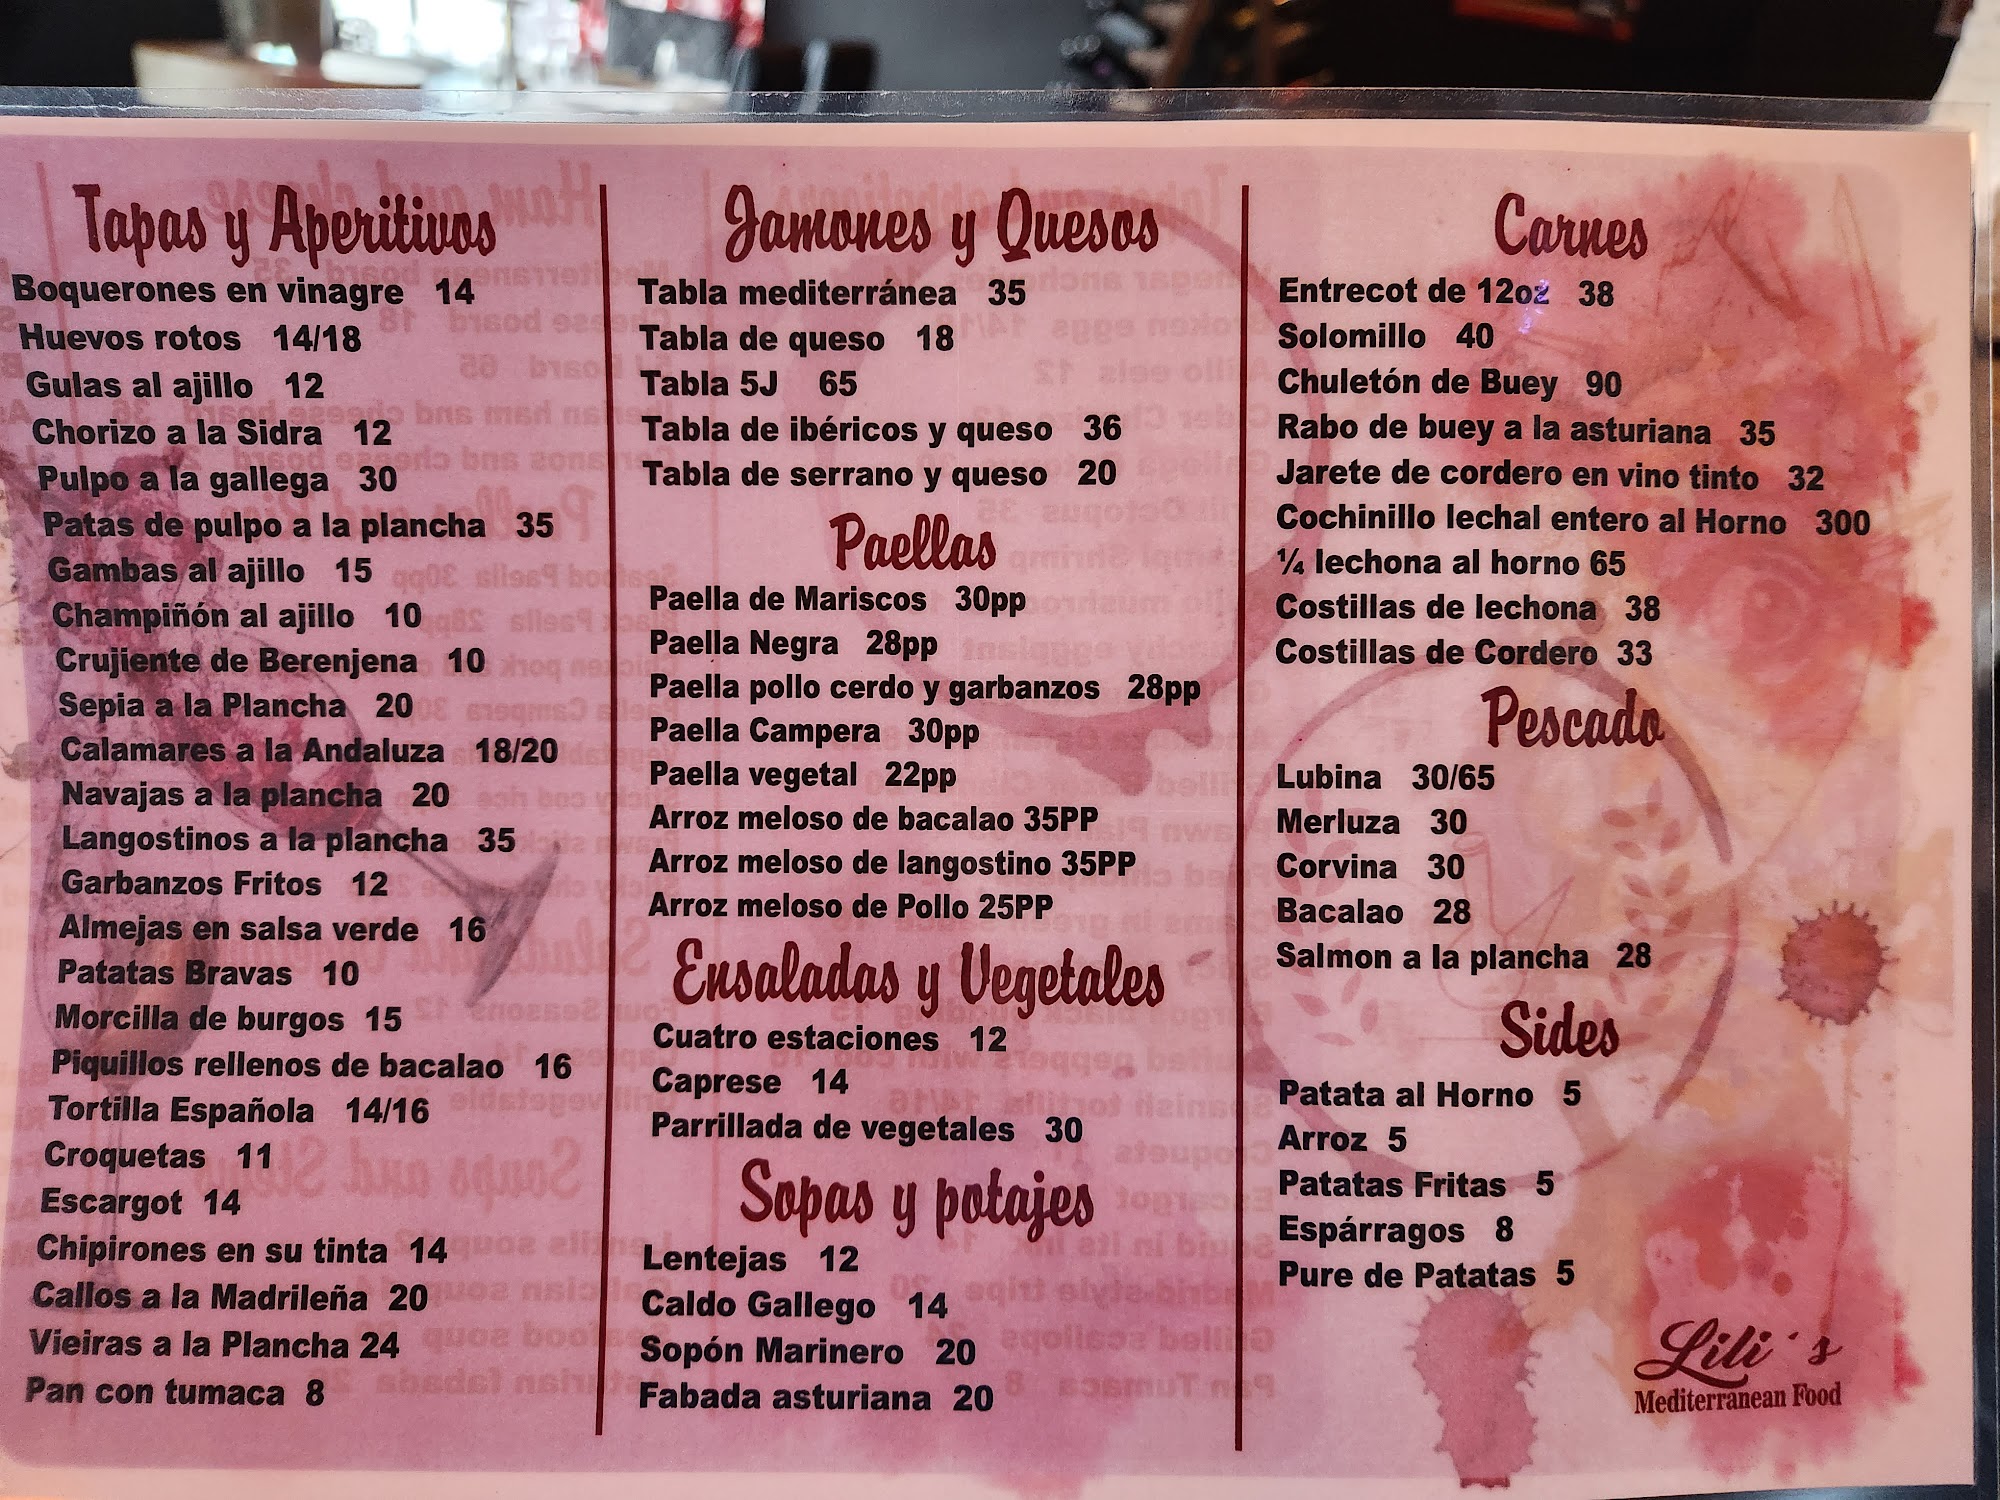 Tapas y Aperitivos
Boquerones en vinagre 14
Huevos rotos 14/18
Gulas al ajillo 12
Chorizo a la Sidra 12
Pulpo a la gallega 30
Patas de pulpo a la plancha 35
Gambas al ajillo 15
Champiñón al ajillo 10
Crujiente de Berenjena 10
Sepia a la Plancha 20
Calamares a la Andaluza 18/20
Navajas a la plancha 20
Langostinos a la plancha 35
Garbanzos Fritos 12
Almejas en salsa verde 16
Patatas Bravas 10
Morcilla de burgos 15
Piquillos rellenos de bacalao 16
Tortilla Española 14/16
Croquetas 11
Escargot 14
Chipirones en su tinta 14
Callos a la Madrileña 20
Vieiras a la Plancha 24
Pan con tumaca 8
Jamones y Quesos
Tabla mediterránea 35
Tabla de queso 18
Tabla 5J 65
Tabla de ibéricos y queso 36
Tabla de serrano y queso 20
Paellas
Paella de Mariscos 30pp
Paella Negra 28pp
Paella pollo cerdo y garbanzos 28pp
Paella Campera 30pp
Paella vegetal 22pp
Arroz meloso de bacalao 35PP
Arroz meloso de langostino 35PP
Arroz meloso de Pollo 25PP
Ensaladas y Vegetales
Cuatro estaciones 12
Caprese 14
Parrillada de vegetales 30
Sopas y potajes
Lentejas 12
Caldo Gallego 14
Sopón Marinero 20
Fabada asturiana 20
Carnes
Entrecot de 12oz 38
Solomillo 40
Chuletón de Buey 90
Rabo de buey a la asturiana 35
Jarete de cordero en vino tinto 32
Cochinillo lechal entero al Horno 300
¼ lechona al horno 65
Costillas de lechona 38
Costillas de Cordero 33
Pescado
Lubina 30/65
Merluza 30
Corvina 30
Bacalao 28
Salmon a la plancha 28
Sides
Patata al Horno 5
Arroz 5
Patatas Fritas 5
Espárragos 8
Pure de Patatas 5
Lili's
Mediterranean Food